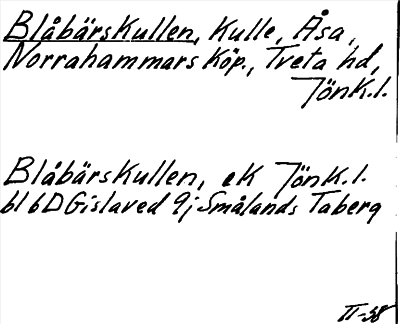 Blåbärskullen, Kulle, Åsa,
Norrahammars köp., Tveta hd,
Jönk.l.
Blåbärskullen, ek Jönk.l.
bl 6D Gislaved 9j Smålands Taberg
II-58